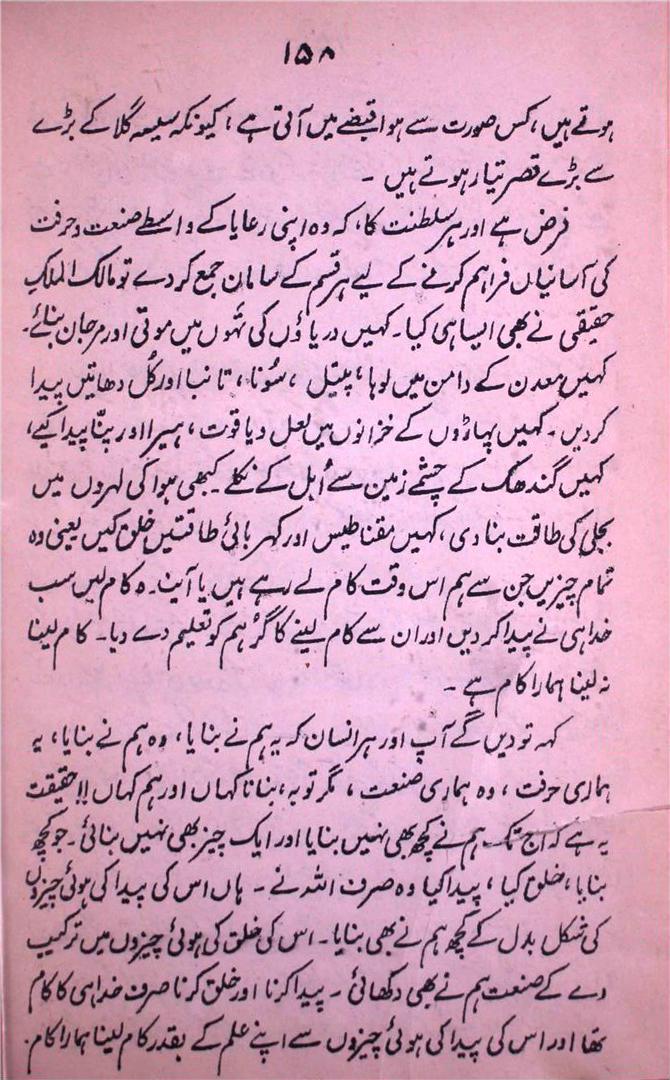 ۱۵۸
ہوتے ہیں، کس صورت سے ہوا قبضے میں آتی ہے، کیونکہ سیسہ گلا کے بڑے
سے بڑے قصر تیار ہوتے ہیں ۔
فرض ہے اور ہر سلطنت کا، کہ وہ اپنی رعایا کے واسطے صنعت و حرفت
کی آسانیاں فراہم کرنے کے لیے ہر قسم کے سامان جمع کر دے تو مالک الملکِ
حقیقی نے بھی ایسا ہی کیا۔ کہیں دریاؤں کی تہوں میں موتی اور مرجان بنائے۔
کہیں معدن کے دامن میں لوہا، پیتل، سُونا، تانبا اور کُل دھاتیں پیدا
کر دیں۔ کہیں پہاڑوں کے خزانوں میں لعل و یاقوت، ہیرا اور پنّا پیدا کیے،
کہیں گندھک کے چشمے زمین سے اُبل کے نکلے۔ کبھی ہوا کی لہروں میں
بجلی کی طاقت بنا دی، کہیں مقناطیس اور کہربائی طاقتیں خلق کیں یعنی وہ
تمام چیزیں جن سے ہم اس وقت کام لے رہے ہیں یا آیندہ کام لیں سب
خدا ہی نے پیدا کر دیں اور ان سے کام لینے کا گُر ہم کو تعلیم دے دیا۔ کام لینا
نہ لینا ہمارا کام ہے ۔
کہہ تو دیں گے آپ اور ہر انسان کہ یہ ہم نے بنایا، وہ ہم نے بنایا، یہ
ہماری حرفت، وہ ہماری صنعت، مگر توبہ، بنانا کہاں اور ہم کہاں !! حقیقت
یہ ہے کہ آج تک ہم نے کچھ بھی نہیں بنایا اور ایک چیز بھی نہیں بنائی۔ جو کچھ
بنایا، خلق کیا، پیدا کیا وہ صرف اللہ نے ۔ ہاں اس کی پیدا کی ہوئی چیزوں
کی شکل بدل کے کچھ ہم نے بھی بنایا۔ اس کی خلق کی ہوئی چیزوں میں ترکیب
دے کے صنعت ہم نے بھی دکھائی ۔ پیدا کرنا اور خلق کرنا صرف خدا ہی کا کام
تھا اور اس کی پیدا کی ہوئی چیزوں سے اپنے علم کے بقدر کام لینا ہمارا کام۔